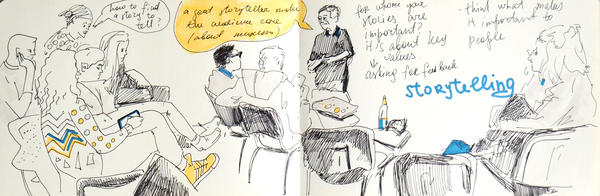 how to find
a story to
tell?
a good storyteller makes
the audience care
(about museum)
for whome your
stories are
important?
It's about key
values.
asking for feedback
- think what makes
it important to
people
storytelling